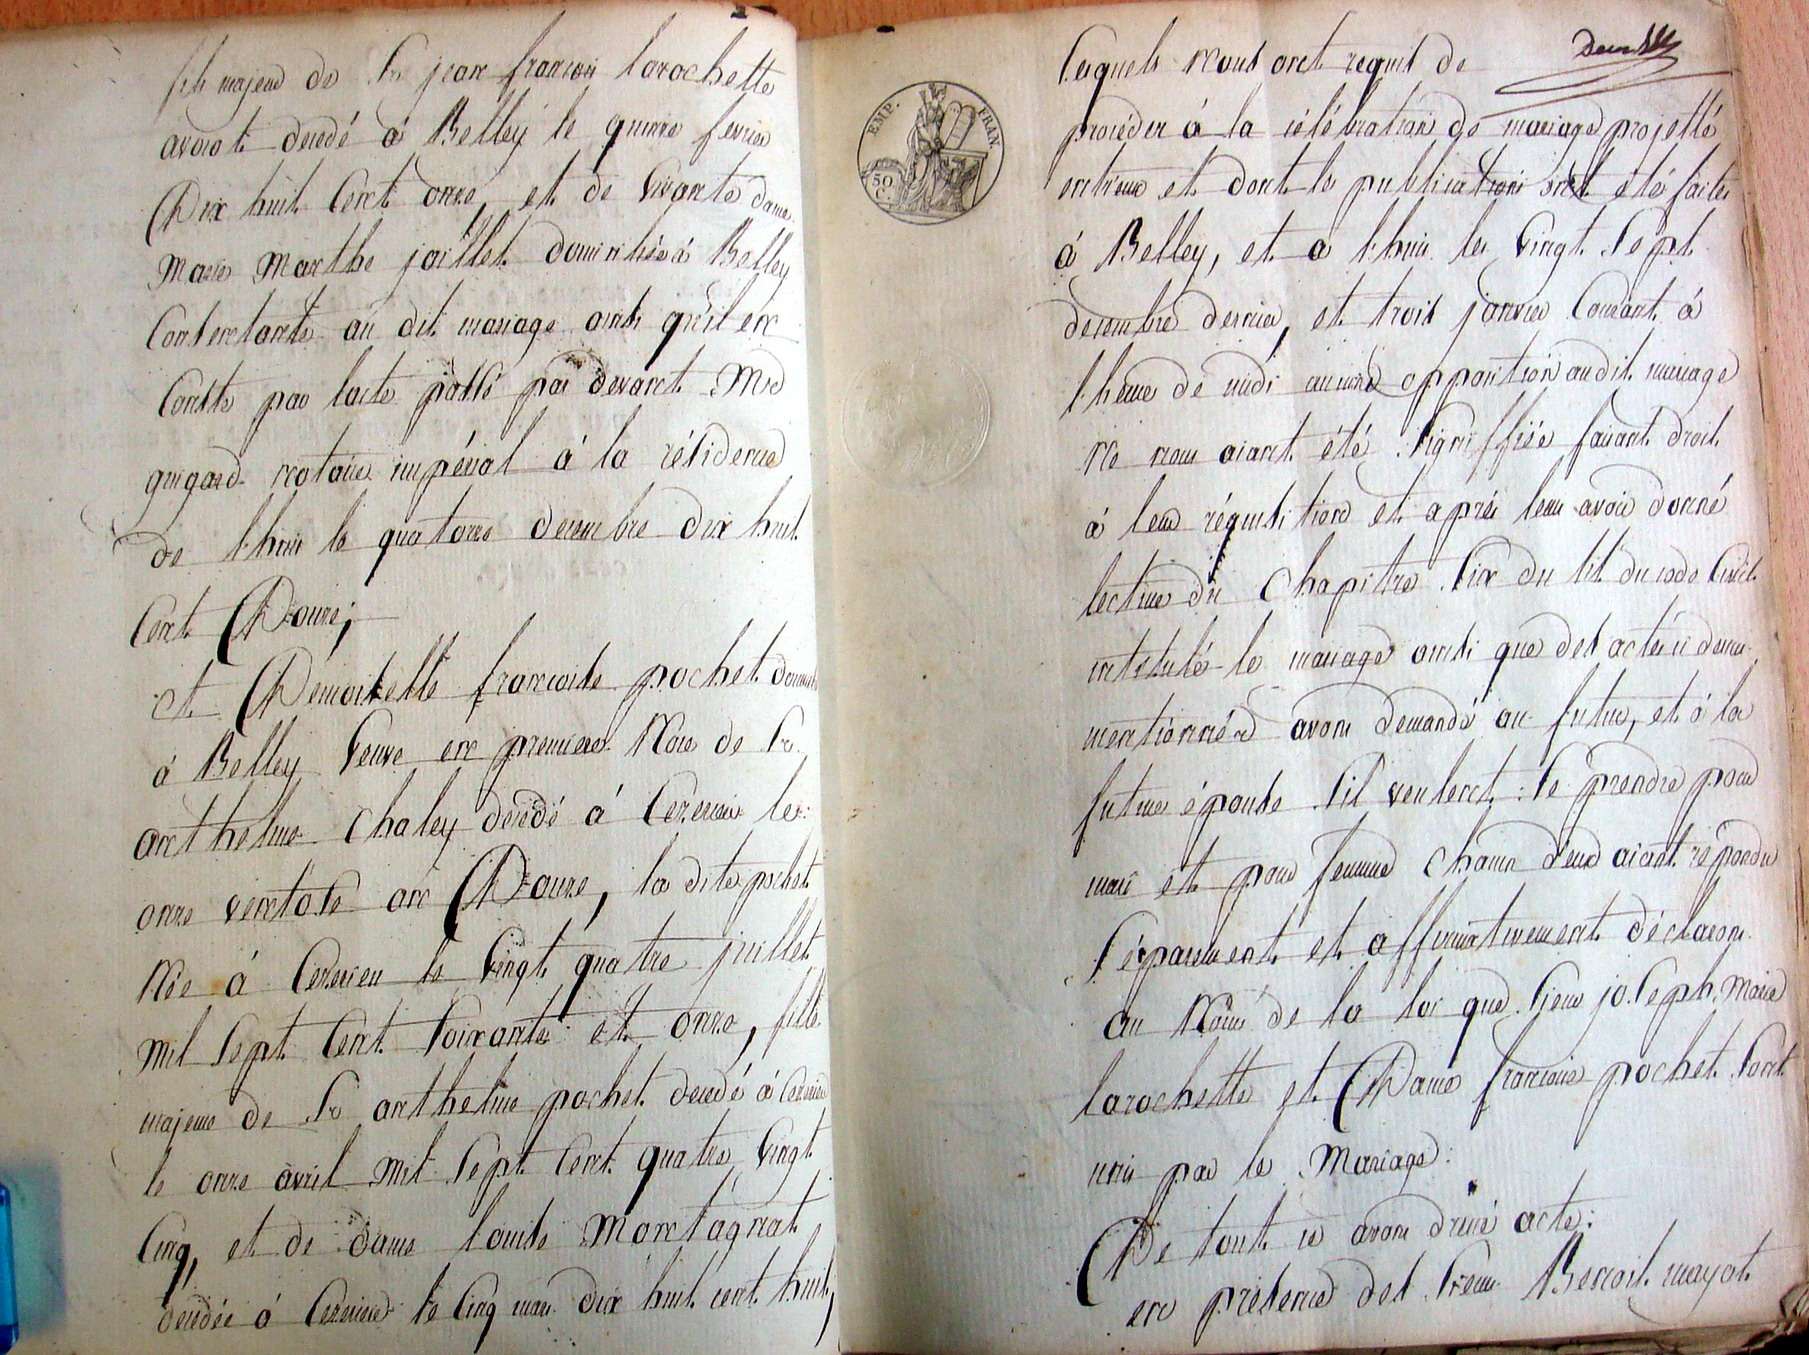 fils majeur de Sr jean françois larochette
avocat decedé à Belley le quinze fevrier
Dix huit Cent onze, et de vivante dame
Marie Marthe jaillet domiciliée à Belley
Consentante au dit mariage ainsi qu'il en
Conste par lacte passé par devant Me
guigard notaire impérial à la résidence
de lhuis le quatorze decembre dix huit
Cent Douze;
et Demoiselle francoise pochet
à Belley Veuve en premiere Noce de Sr
anthelme Chaley décédé à Ceyzerieu le
onze ventose an Douze, la dite pochet
Née à Ceyzerieu le vingt quatre juillet
mil Sept Cent Soixante et onze, fille
majeure de Sr anthelme pochet decedé à Ceyzerieu
le onze avril mil Sept Cent quatre vingt
Cinq, et de dame louise Montagnat
decedée à Ceyzerieu le Cinq mars dix huit cent huit,
EMP. FRAN.
50 C.
Lesquels Nous ont requis de
procéder à la célébration de mariage projetté
entreux et dont les publications ont été faites
à Belley, et a lhuis les vingt Sept
decembre dernier, et trois janvier Courant à
lheure de midi aucune opposition audit mariage
Ne nous aiant été Signiffiée faisant droit
à leur réquisition et après leur avoir donné
lecture du Chapitre Six du tit du code Civil
intitulé le mariage ainsi que des actes ci dessus
mentionnés avons demandé au futur, et à la
future épouse S'il veulent Se prendre pour
mari et pour femme chacun d'eux aiant répondu
Séparement et affirmativement déclarons
au Nom de la loi que Sieur joseph Marie
larochette et Dame francoise pochet Sont
unis par le Mariage:
De tout ce avons dressé acte:
en présence des Sieurs Benoit mayot